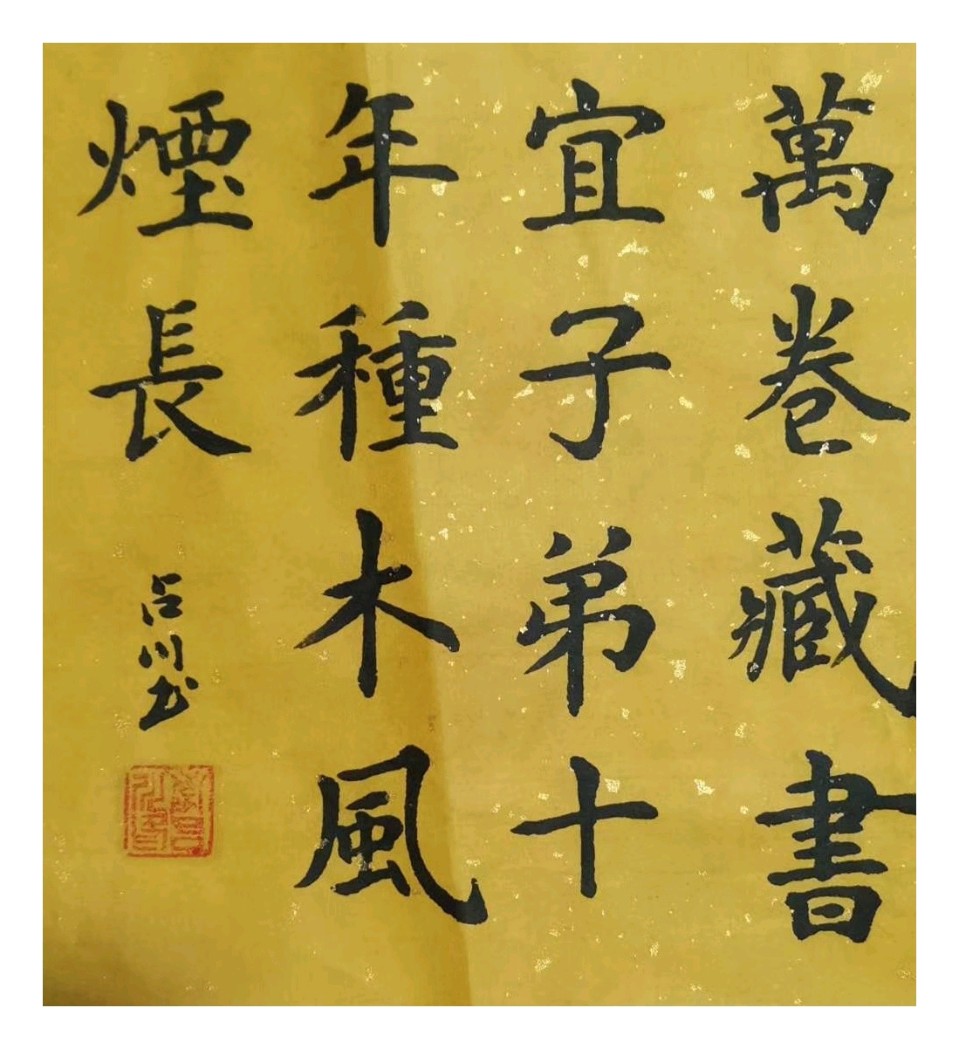 萬卷藏書
宜子弟十
年種木風
煙長
占川书